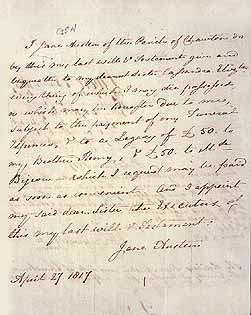 I Jane Austen of the Parish of Chawton do
by this my last Will & Testament give and
bequeath to my dearest Sister Cassandra Elizth
every thing of which I may die possessed,
or which may be hereafter due to me,
subject to the payment of my Funeral
Expences, & to a Legacy of £50. to
my Brother Henry, & £50. to Mde
Bijion - which I request may be paid
as soon as convenient. And I appoint
my said dear Sister the Executrix of
this my last Will & Testament.
Jane Austen
April 27 1817